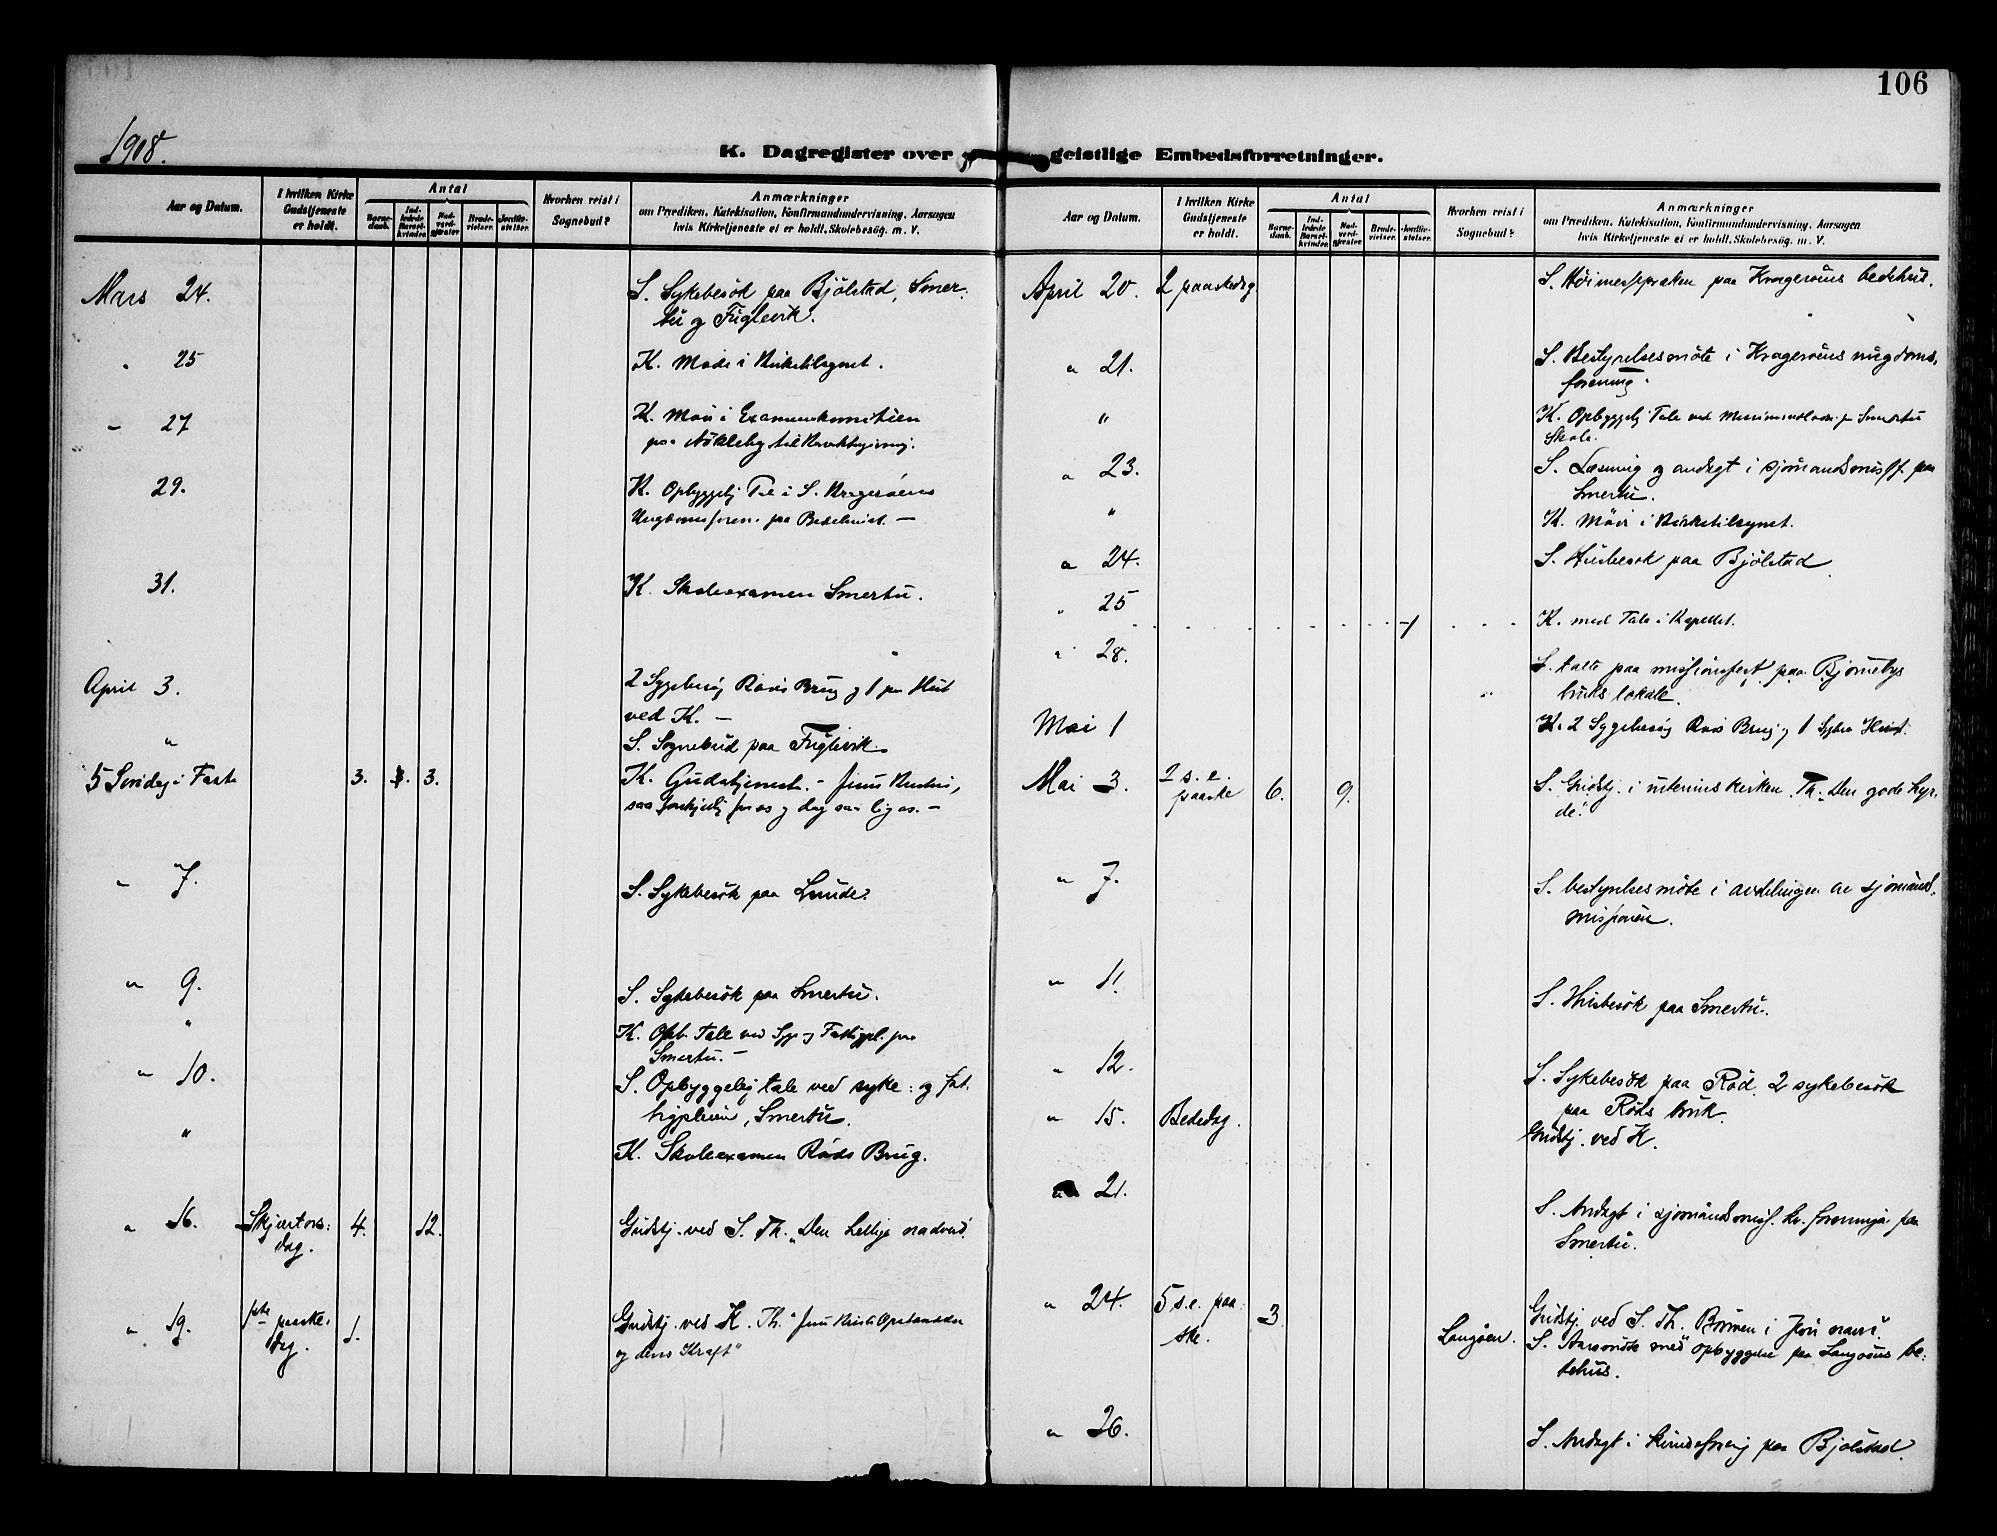 106
1908.
K. Dagregister over geistlige Embedsforretninger.
Aar og Datum.
I hvilken Kirke Gudstjeneste er holdt.
Antal
Barnedaab.
Indledede Barselkvinder.
Nadverdgjæster
Brudevielser.
Jordfæstelser.
Hvorhen reist i Sognebud?
Anmærkninger
om Prædiken, Katekisation, Konfirmandundervisning, Aarsagen
hvis Kirketjeneste ei er holdt, Skolebesög. m. V.
Mars 24. S. Sykebesök paa Bjölstad, Smer-
tu og Fuglevik.
" 25 K. Möde i Kirketilsynet.
" 27 K. Möde i Examenskomiteen
paa
29. K. Opbyggelig Tale i S. Kragerøens
Ungdomsforen. paa Bedehuset. —
31. K. Skoleexamen Smertu.
April 3. 2 Sygebesög Röds Brug og 1 paa
ved K. —
" S. Sognebud paa Fuglevik.
5 Söndag i Faste 3. 3. K. Gudstjenest. - Jesus Kristus,
saa forskjellig fra os og dog saa lig os. —
" 7. S. Sykebesök paa Lunde.
" 9. S. Sykebesök paa Smertu.
" K. Opb. Tale ved Syge og Fattigpl. paa
Smertu. —
" 10. S. Opbyggelig tale ved syke- og fat-
tigpleien, Smertu.
" K. Skoleexamen Röds Brug.
" 16. Skjærtors- 4. 12. Gudstj. ved S. Th. "Den hellige nadverd.
dag.
" 19. 1ste paaske- 1. Gudstj. ved K. Th. "Jesu Kristi Opstandelse
dag. og dens Kraft"
Aar og Datum.
I hvilken Kirke Gudstjeneste er holdt.
Antal
Barnedaab.
Indledede Barselkvinder.
Nadverdgjæster
Brudevielser.
Jordfæstelser.
Hvorhen reist i Sognebud?
Anmærkninger
om Prædiken, Katekisation, Konfirmandundervisning, Aarsagen
hvis Kirketjeneste ei er holdt, Skolebesög. m. V.
April 20. 2 paaskedag. S. Höimesspræken paa Kragerøens bedehus.
" 21. S. Bestyrelsesmöte i Kragerøens ungdoms-
forening.
" K. Opbyggelig Tale ved Smertu
Skole.
" 23. S. Læsning og andagt i sjömandsmissf. paa
Smertu.
" K. Möde i Kirketilsynet.
" 24. S. Husbesök paa Bjölstad
" 25 1 K. med Tale i Kapellet.
" 28. S. talte paa missionsfest paa Bjørnebys
bruks lokale.
Mai 1 K. 2 Sygebesög Röds Brug og 1
Mai 3. 2 s. e. 6. 9. S. Gudstj. i interimskirken. Th. "Den gode hyr-
paaske de".
" 7. S. bestyrelsesmöte i avdelingen av sjömands-
missionen.
" 11. S. Husbesök paa Smertu.
" 12. S. Sykebesök paa Röd. 2 sykebesök
paa Röds bruk.
" 15. Bededag. Gudstj. ved K.
" 21. S. Andagt i sjömandsmiss. kv. foreninga paa
Smertu.
" 24. 5 s. e. paa- 3 Gudstj. ved S. Th. Bönnen i Jesu navn.
ske. Langøen. S. med opbyggelse paa Langøens be-
dehus.
" 26. S. Andagt i kvindeforenig paa Bjölstad.